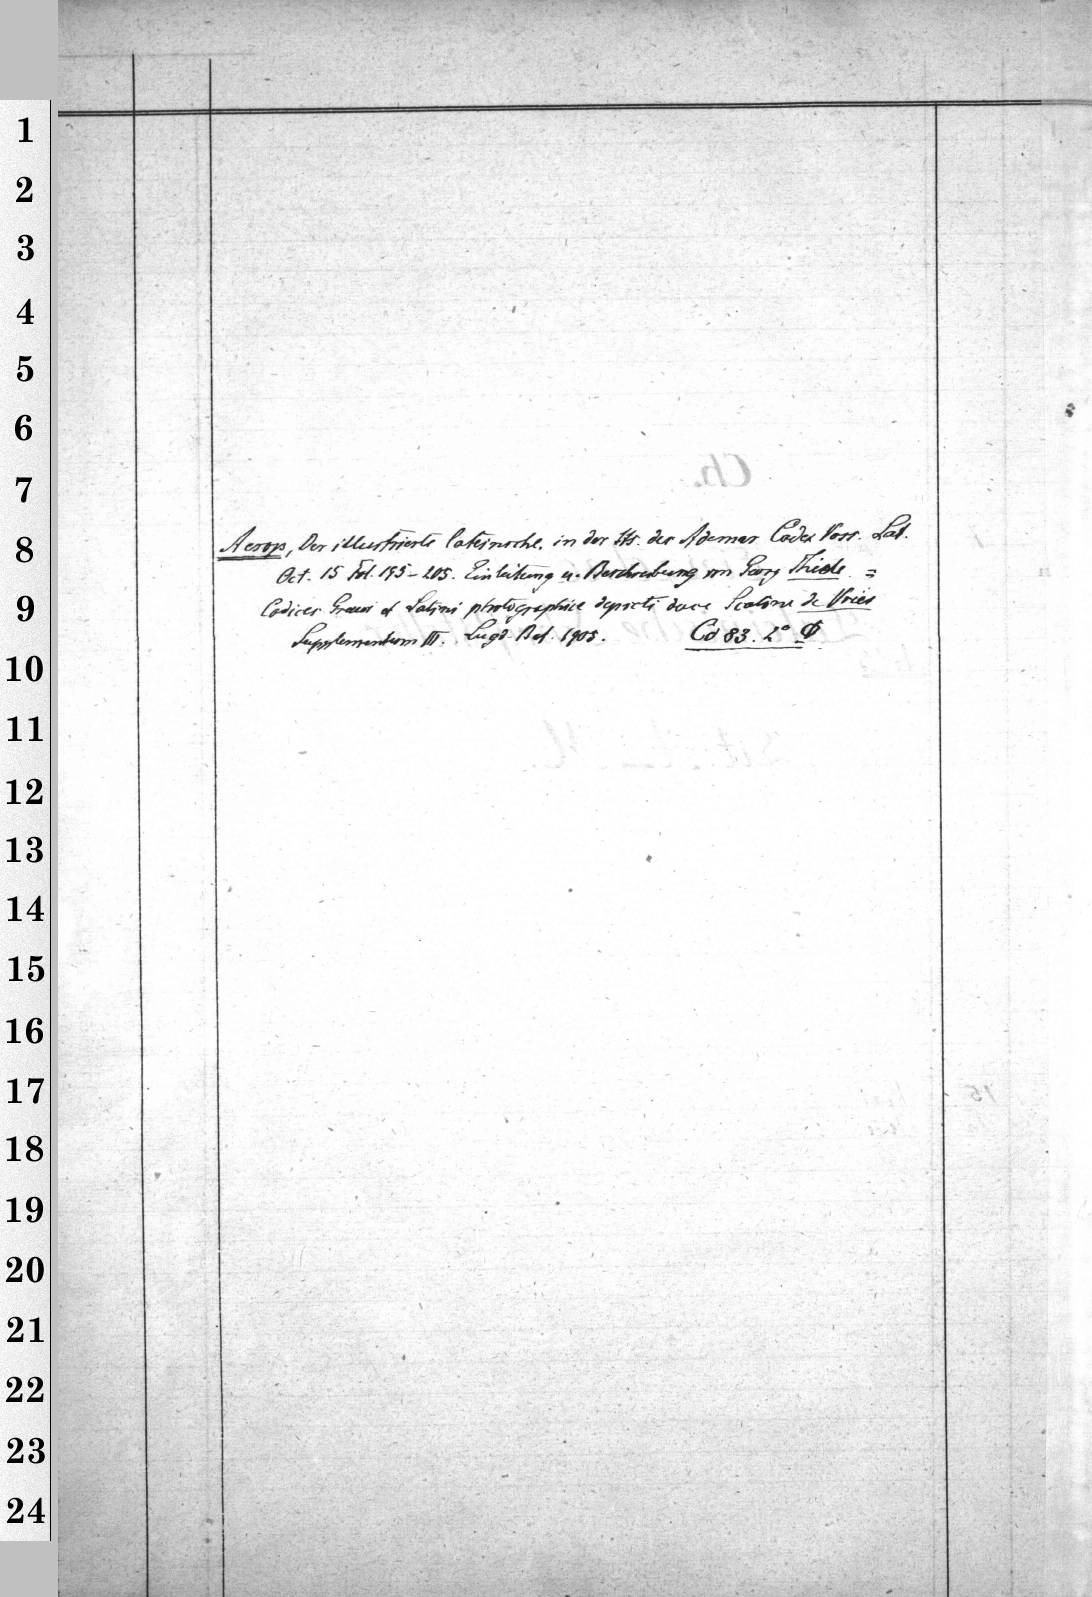 1
2
3
4
5
6
7
8
9
10
11
12
13
14
15
16
17
18
19
20
21
22
23
24
Aesop, Der illustrierte lateinische, in der Hs. des Ademar Codex Voss. Lat.
Oct. 15 Fol. 195-205. Einleitung u. Beschreibung von Georg Thiele =
Codices Graeci et Latini photographice depicti duce Scatone de Vries
Supplementum III. Lugd. Bat. 1905. Cd 83. 2° Φ